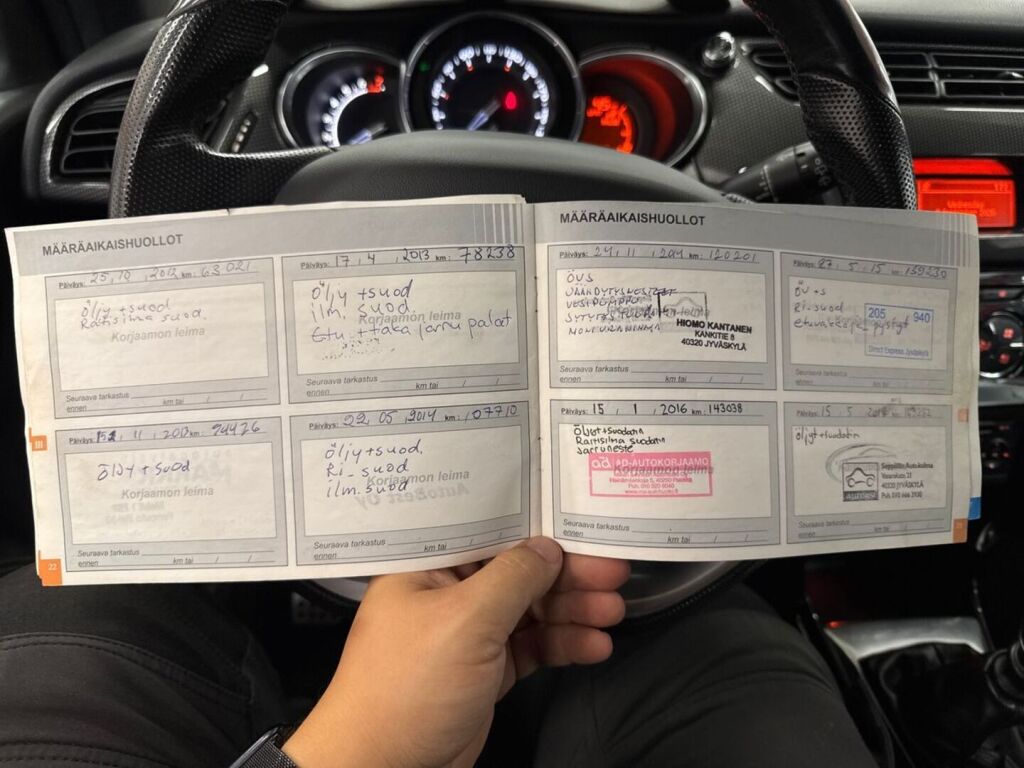 MÄÄRÄAIKAISHUOLLOT
Päiväys: 25, 10, 2012 km: 63021
Öljy + suod
Raitisilma suod.
Korjaamon leima
Seuraava tarkastus
ennen km tai / /
Päiväys: 17, 4, 2013 km: 78238
Öljy + suod
ilm. suod
Korjaamon leima
Etu. + taka jarru palat
Seuraava tarkastus
ennen km tai / /
Päiväys: 11, 2013 km: 94426
Öljy + suod
Korjaamon leima
Seuraava tarkastus
ennen km tai / /
Päiväys: 22, 05, 2014 km: 107710
Öljy + suod.
Ri_ suod
Korjaamon leima
ilm. suod
Seuraava tarkastus
ennen km tai / /
22
MÄÄRÄAIKAISHUOLLOT
Päiväys: 24, 11, km: 120201
ÖVS
JÄÄHDYTYSNESTEET
VESIPUMPPU
HIOMO KANTANEN
KANKITIE 8
40320 JYVÄSKYLÄ
Seuraava tarkastus
ennen km tai / /
Päiväys: 27, 5, 15 km: 139230
Ri-suod
205 940
Direct Express Jyväskylä
Seuraava tarkastus
ennen km tai / /
Päiväys: 15, 1, 2016 km: 143038
Öljyt + suodatin
Raitisilma suodatin
Jarruneste
ad AD-AUTOKORJAAMO
Korjaamon leima
Seuraava tarkastus
ennen km tai / /
Päiväys: 15, 5, km:
Öljyt + suodatin
Seppälän Autokulma
Vasarakatu 21
40320 JYVÄSKYLÄ
Seuraava tarkastus
ennen km tai / /